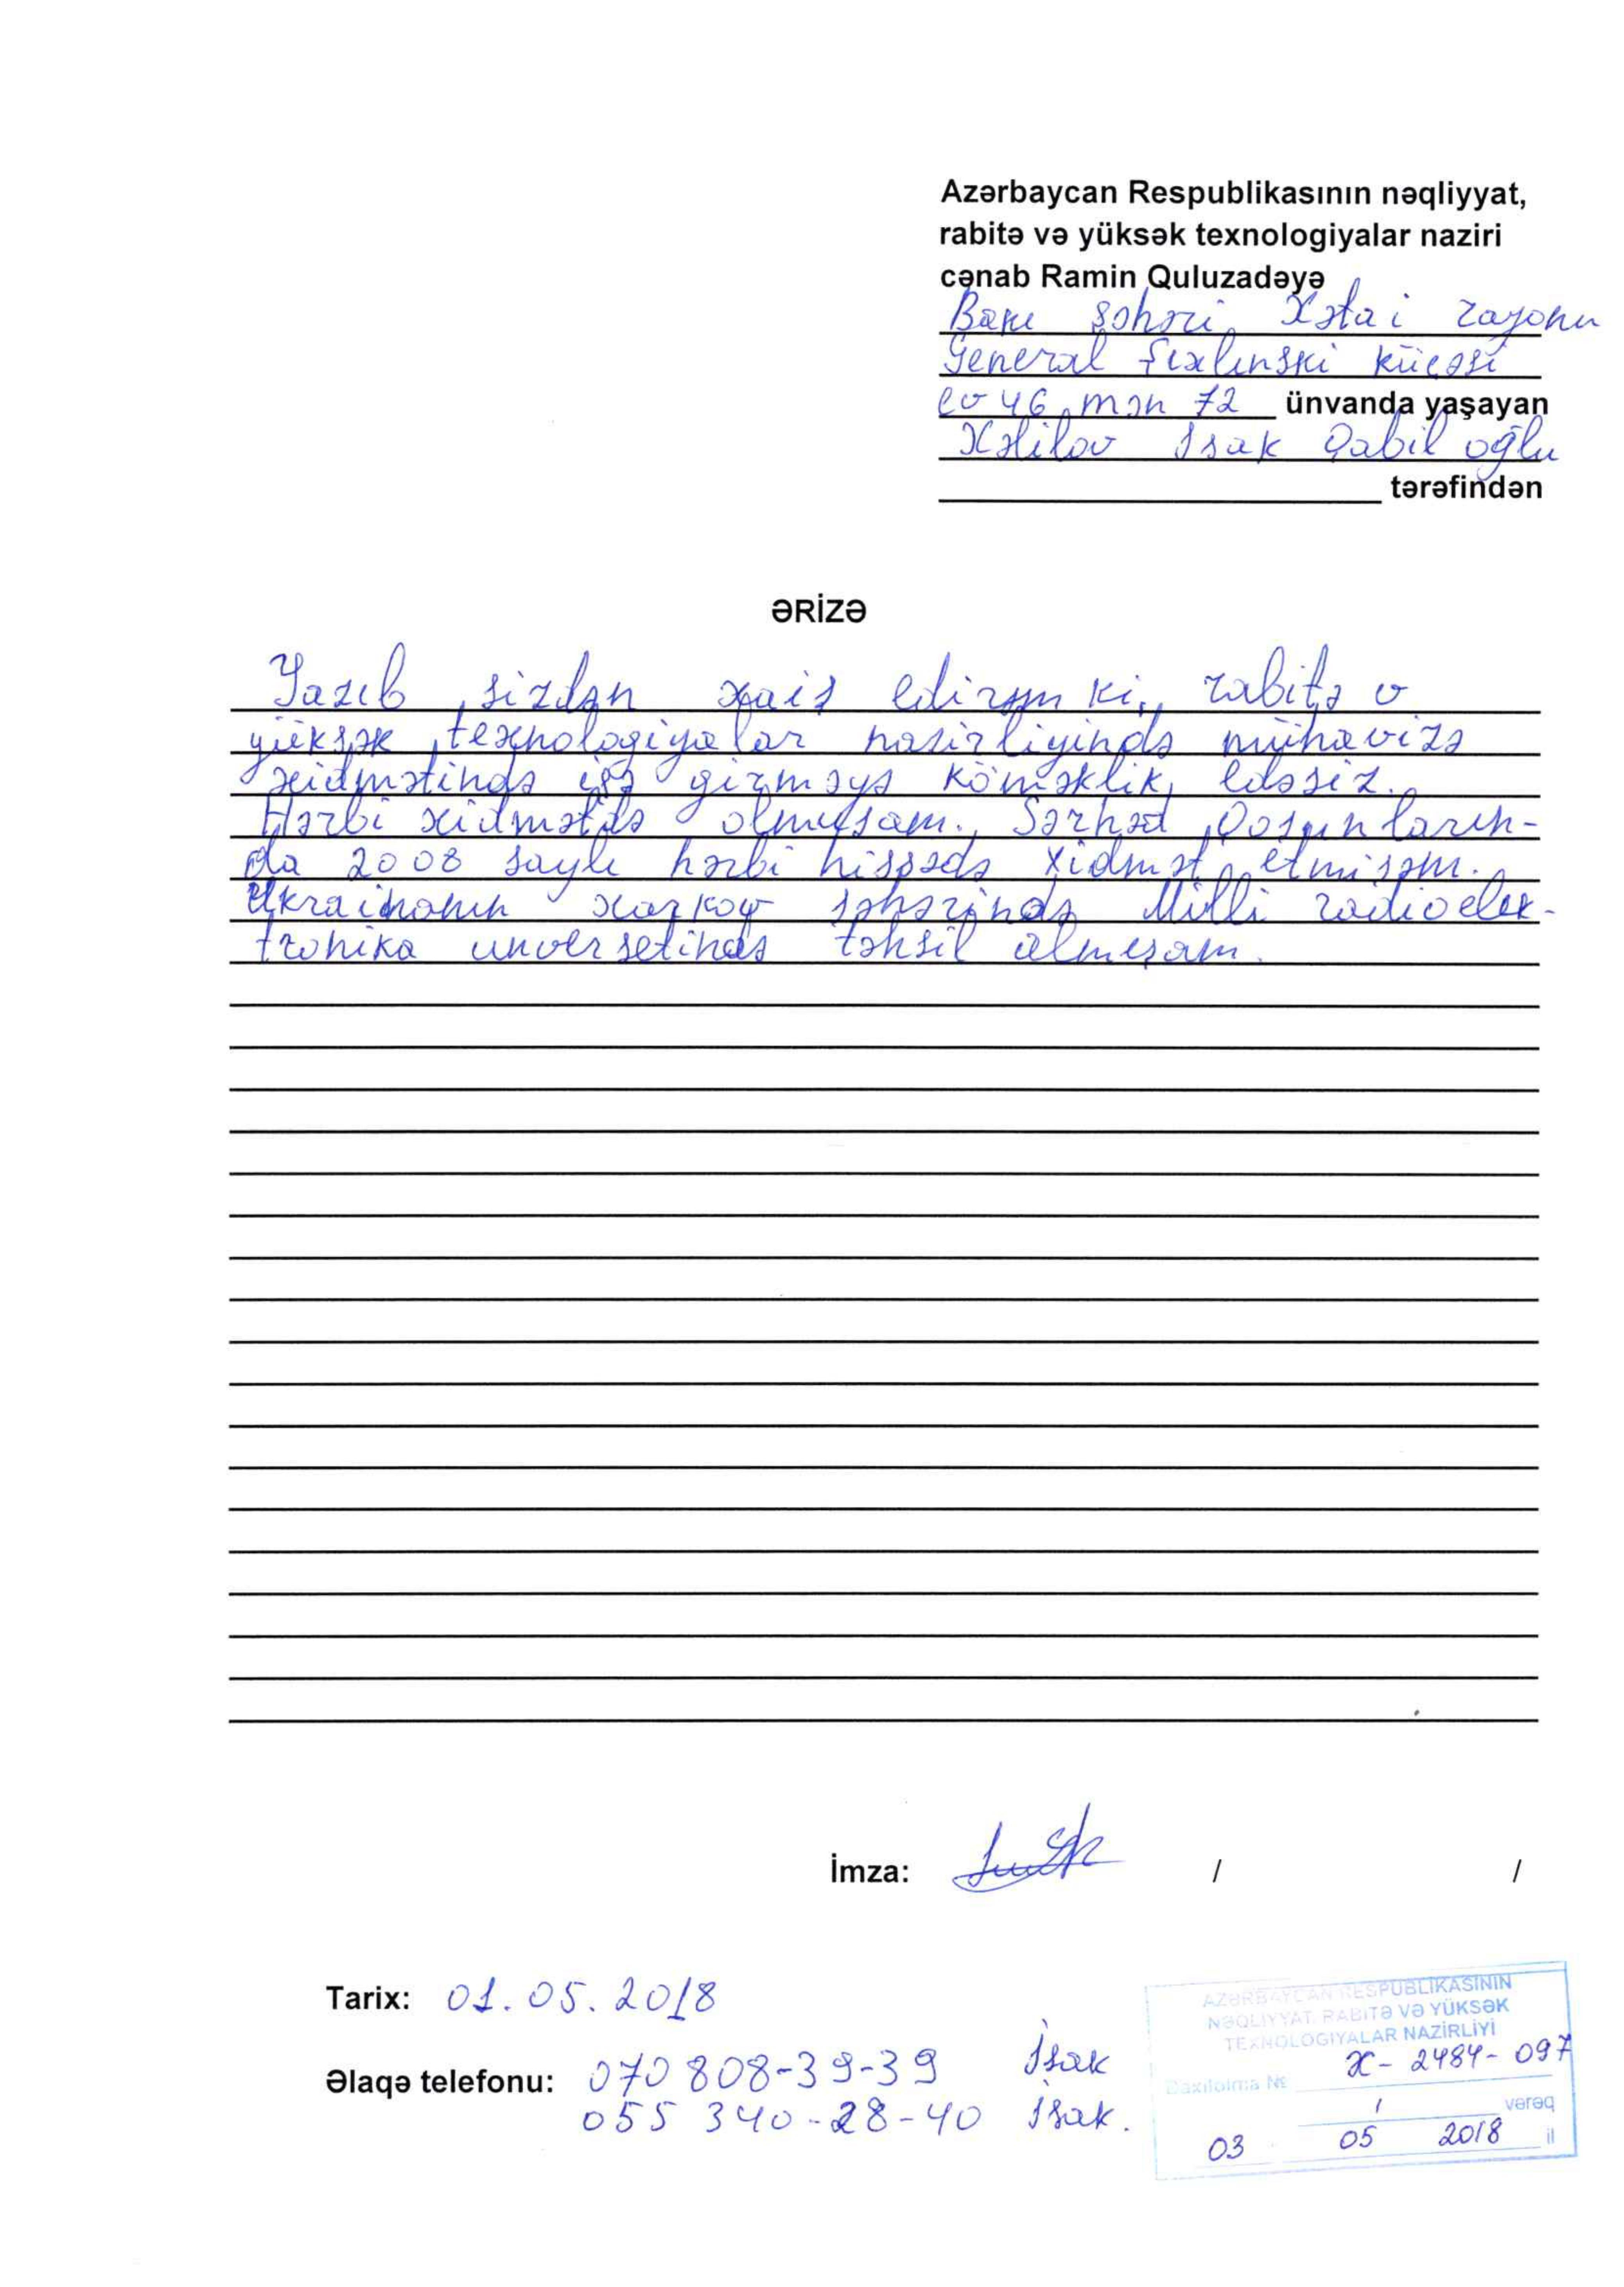 Azərbaycan Respublikasının nəqliyyat,
rabitə və yüksək texnologiyalar naziri
cənab Ramin Quluzadəyə
Bakı şəhəri, Xətai rayonu
General Şıxlınski küçəsi
ev 46, mən 72 ünvanda yaşayan
Xəlilov İsak Qabil oğlu
tərəfindən
ƏRİZƏ
Yazıb sizdən xais edirəm ki, rabitə v
yüksək texnologiyalar nazirliyində mühavizə
xidmətində işə girməyə köməklik edəsiz.
Hərbi xidmətdə olmuşam. Sərhəd Qoşunların-
da 2008 saylı hərbi hissədə xidmət etmişəm.
Ukrainanın xarkov şəhərində Milli radioelek-
tronika unversetində təhsil almışam.
İmza: / /
Tarix: 01.05.2018
Əlaqə telefonu: 070 808-39-39 İsak
055 340-28-40 İsak.
AZƏRBAYCAN RESPUBLİKASININ
NƏQLİYYAT, RABİTƏ VƏ YÜKSƏK
TEXNOLOGİYALAR NAZİRLİYİ
Daxilolma № X- 2484- 097
1 vərəq
03 05 2018 il